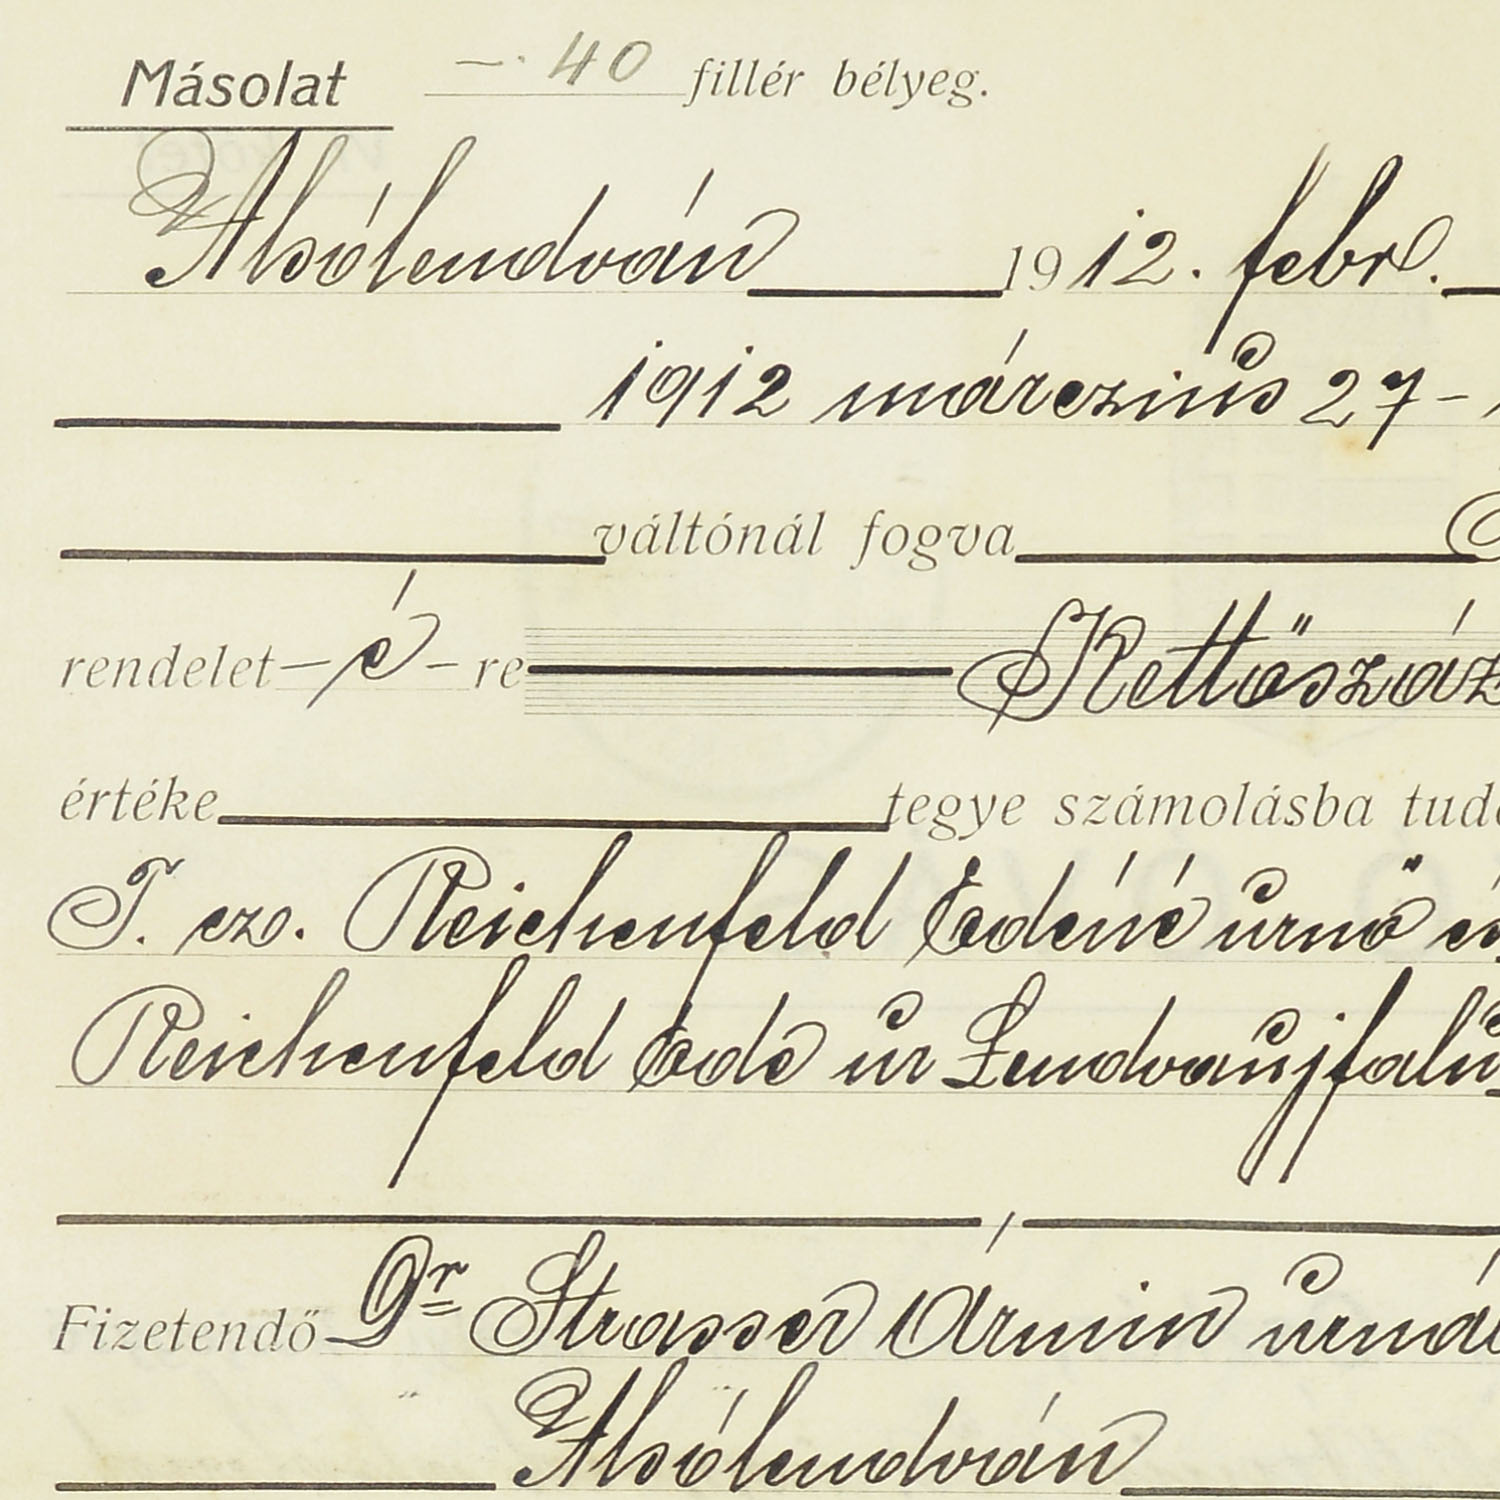 Másolat — . 40 fillér bélyeg.
Alsólendván 1912. febr.
1912 márczius 27 -
váltónál fogva
rendelet - é - re Kettőszáz
értéke tegye számolásba
T. cz. Reichenfeld Edéné úrnő és
Reichenfeld Ede úr Lendvaujfalu
Fizetendő Dr Strasser Ármin urnál
Alsólendván